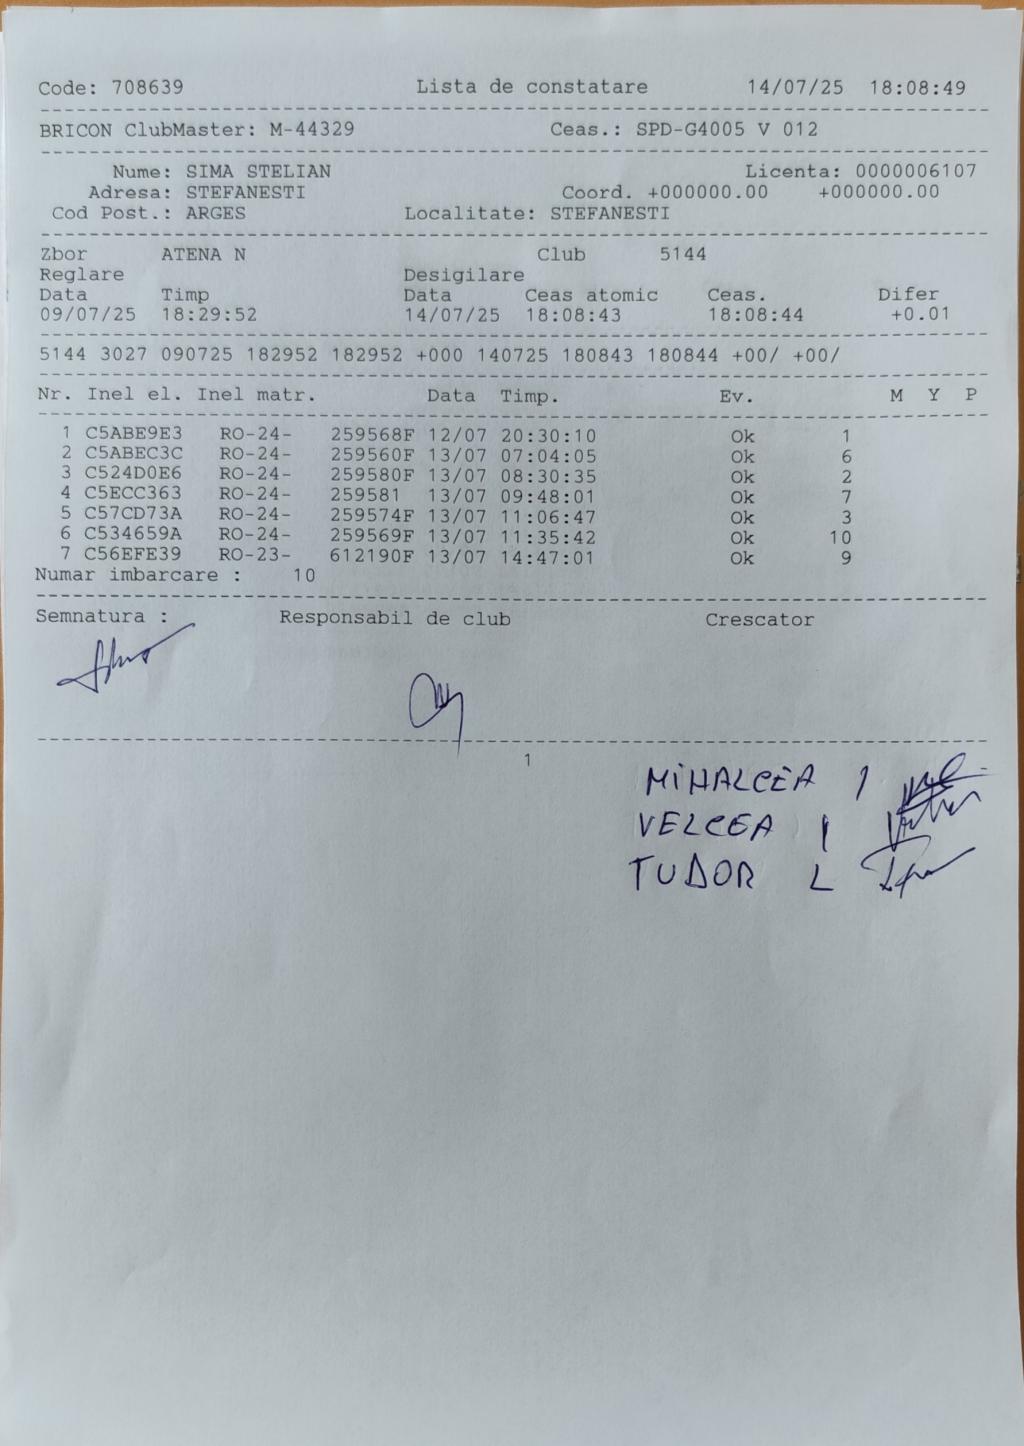 Code: 708639 Lista de constatare 14/07/25 18:08:49
BRICON ClubMaster: M-44329 Ceas.: SPD-G4005 V 012
Nume: SIMA STELIAN Licenta: 0000006107
Adresa: STEFANESTI Coord. +000000.00 +000000.00
Cod Post.: ARGES Localitate: STEFANESTI
Zbor ATENA N Club 5144
Reglare Desigilare
Data Timp Data Ceas atomic Ceas. Difer
09/07/25 18:29:52 14/07/25 18:08:43 18:08:44 +0.01
5144 3027 090725 182952 182952 +000 140725 180843 180844 +00/ +00/
Nr. Inel el. Inel matr. Data Timp. Ev. M Y P
1 C5ABE9E3 RO-24- 259568F 12/07 20:30:10 Ok 1
2 C5ABEC3C RO-24- 259560F 13/07 07:04:05 Ok 6
3 C524D0E6 RO-24- 259580F 13/07 08:30:35 Ok 2
4 C5ECC363 RO-24- 259581 13/07 09:48:01 Ok 7
5 C57CD73A RO-24- 259574F 13/07 11:06:47 Ok 3
6 C534659A RO-24- 259569F 13/07 11:35:42 Ok 10
7 C56EFE39 RO-23- 612190F 13/07 14:47:01 Ok 9
Numar imbarcare : 10
Semnatura : Responsabil de club Crescator
1
MIHALCEA I
VELCEA I
TUDOR L